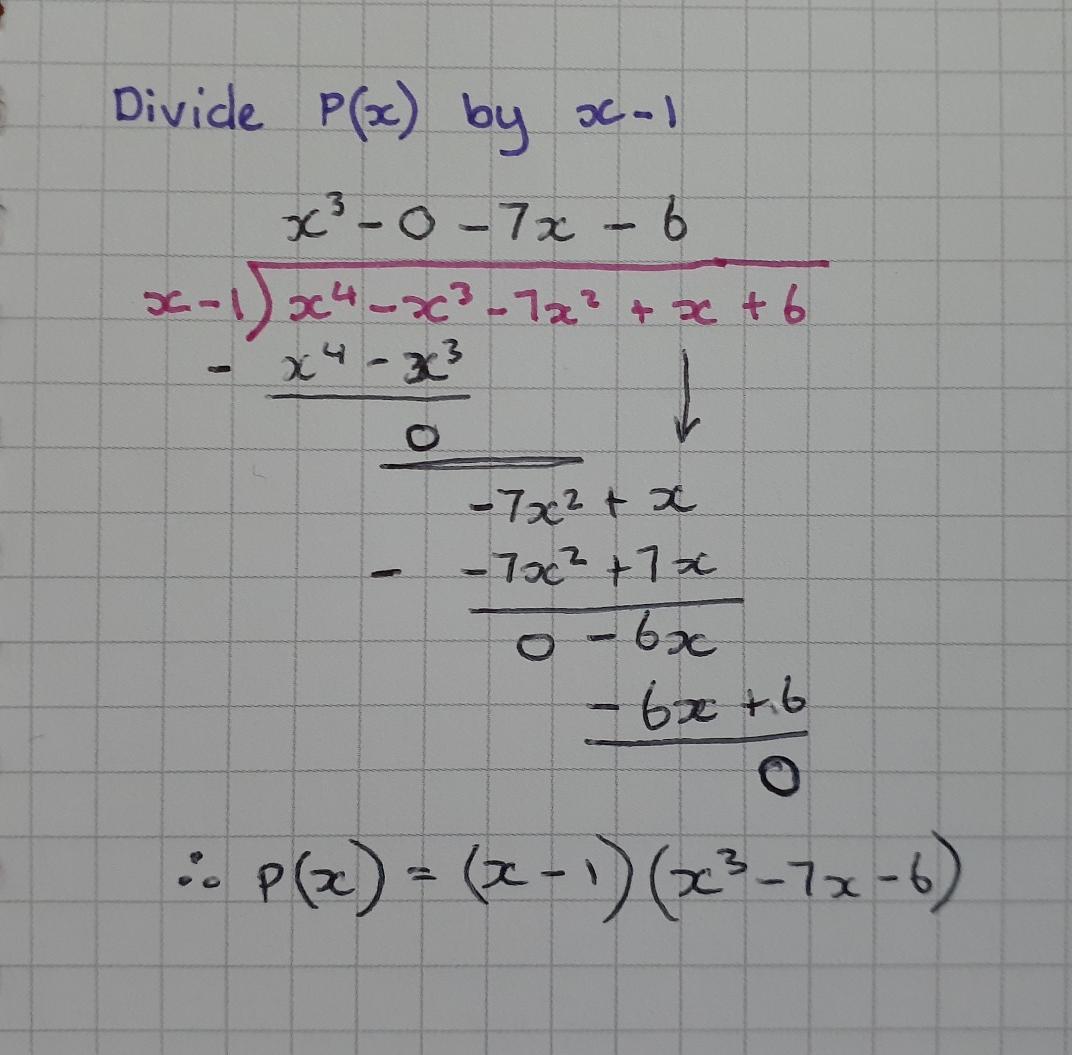 Divide P(x) by x-1
x³ - 0 - 7x - 6
x-1)x⁴ - x³ - 7x² + x + 6
- x⁴ - x³
0
-7x² + x
- -7x² + 7x
0 - 6x
- 6x + 6
0
∴ P(x) = (x-1)(x³-7x-6)